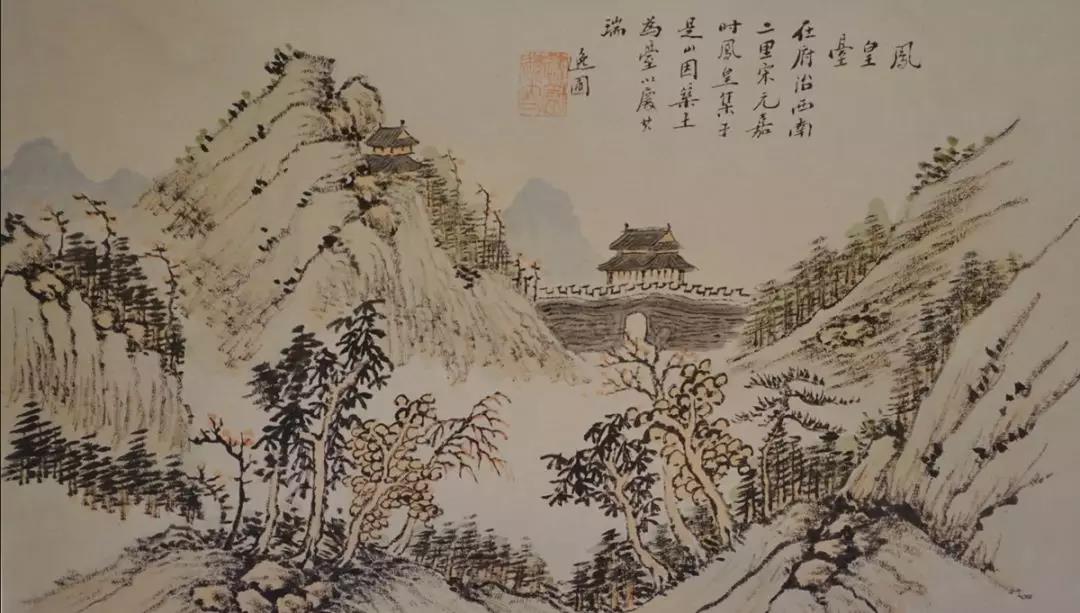 鳳皇臺
在府治西南
二里宋元嘉
时鳳皇集于
是山因築土
為臺以慶其
瑞
逸